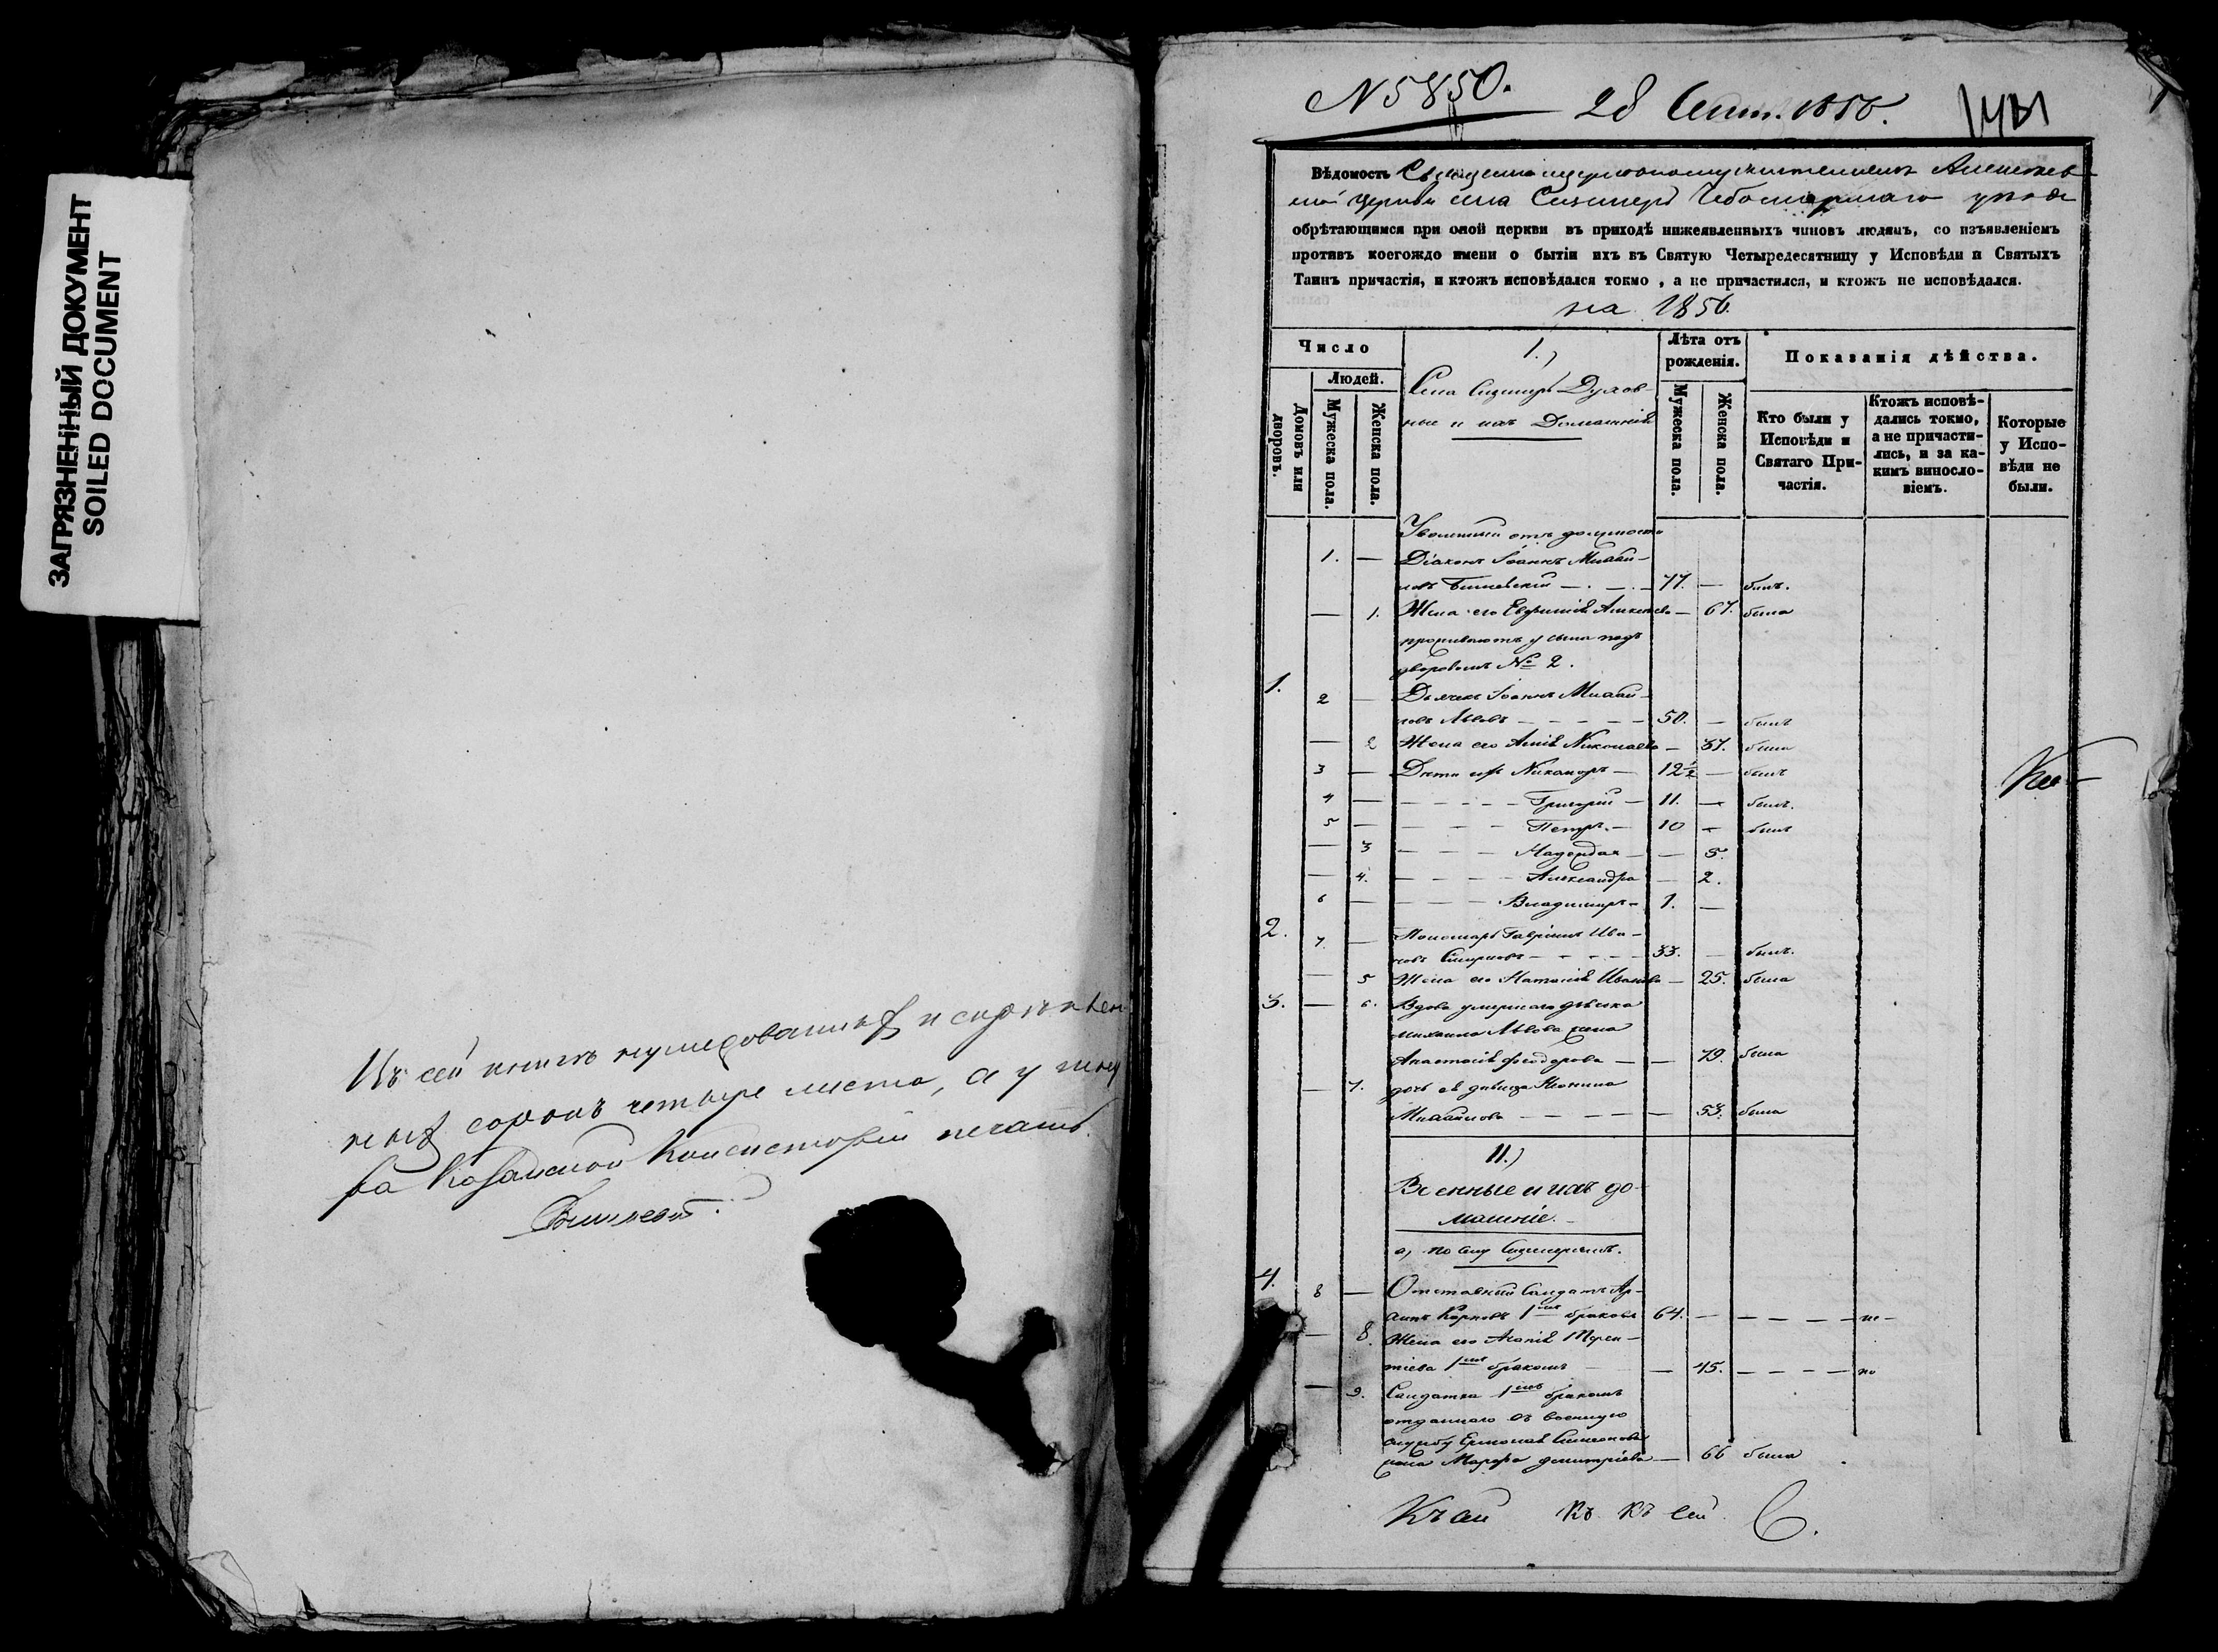 ЗАГРЯЗНЕННЫЙ ДОКУМЕНТ
SOILED DOCUMENT
Въ сей книгѣ нумерованныхъ и скрѣплен
ныхъ сорокъ четыре листа, а у шну
ра Казанской Консисторіи печать.
N 5850. 28 Сент. 1856.
Вѣдомость
церкви села Сизмеръ Чебоксарскаго уѣзда
обрѣтающимся при оной церкви въ приходѣ нижеявленныхъ чиновъ людямъ, со изъявленіемъ
противъ коегождо имени о бытіи ихъ въ Святую Четыредесятницу у Исповѣди и Святыхъ
Таинъ причастія, и ктожъ исповѣдался токмо, а не причастился, и ктожъ не исповѣдался.
на 1856.
Число
Людей.
Домовъ или дворовъ.
Мужеска пола.
Женска пола.
1.)
Села Сизмеръ Духов-
ные и ихъ Домашніе
Лѣта отъ рожденія.
Мужеска пола.
Женска пола.
Показанія дѣйства.
Кто были у Исповѣди и Святаго При-частія.
Ктожъ исповѣ-дались токмо, а не причасти-лись, и за ка-кимъ виносло-віемъ.
Которые у Испо-вѣди не были.
Уволенный отъ должности
1. — Діаконъ Іоаннъ Михаи-
ловъ — 77. — былъ.
— 1. Жена его Евфимія Алексѣева — 67. была
проживаютъ у сына подъ
дворовымъ № 2.
1. 2 — Дьячекъ Іоаннъ Михаи-
ловъ Львовъ — 50. — былъ
— 2 Жена его Анна Николаева — 37. была
3 — Дѣти ихъ Никаноръ — 12½ — былъ
4 — Григорій — 11. — былъ.
5 — Петръ — 10 — былъ
— 3 Надежда — — 5.
— 4. Александра — 2.
6 — Владимиръ — 1. —
2. 7. — Пономарь Гавріилъ Ива-
новъ Смирновъ — 33. — былъ.
— 5 Жена его Наталія Иванова — 25. была
3. — 6. Вдова умершаго дьячка
Михаила Львова жена
Анастасія Феодорова — — 79. была
— 7. дочь ея дѣвица
Михайлова — — 53. была
II.)
Военные и ихъ до-
машніе.
а, по селу Сизмерамъ.
4. 8 — Отставный Салдатъ
Карповъ 1мъ бракомъ 64. — — не
— 8. Жена его Терен-
тіева 1мъ бракомъ — 45. — не
— 9. Салдатка 1мъ бракомъ
отданнаго въ военную
службу Ермолая Симеонова
жена Марфа Димитріева — 66 была
Къ сей